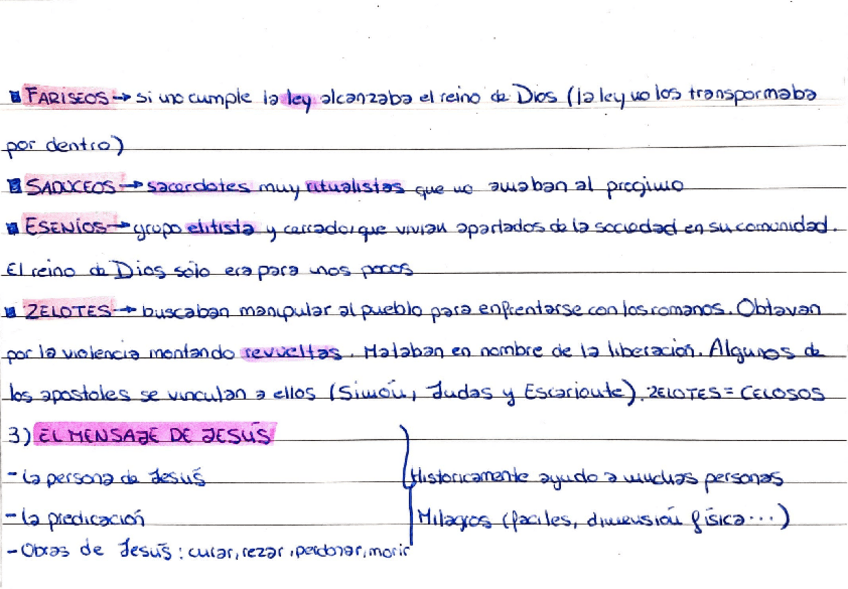 ▪ FARISEOS → si uno cumple la ley alcanzaba el reino de Dios (la ley no los transpormaba
por dentro)
▪ SADUCEOS → sacerdotes muy ritualistas que no amaban al progimo
▪ ESENÍOS → grupo elitista y cerrado, que vivian apartados de la sociedad en su comunidad.
El reino de Dios solo era para unos pocos
▪ ZELOTES → buscaban manipular al pueblo para enfrentarse con los romanos. Obtavan
por la violencia montando revueltas. Mataban en nombre de la liberación. Algunos de
los apostoles se vinculan a ellos (Simón, Judas y Escarioute). ZELOTES = CELOSOS
3) EL MENSAJE DE JESÚS
- La persona de Jesús
Historicamente ayudo a muchas personas
- La predicación
Milagros (faciles, dimensión física...)
- Obras de Jesús: curar, rezar, perdonar, morir